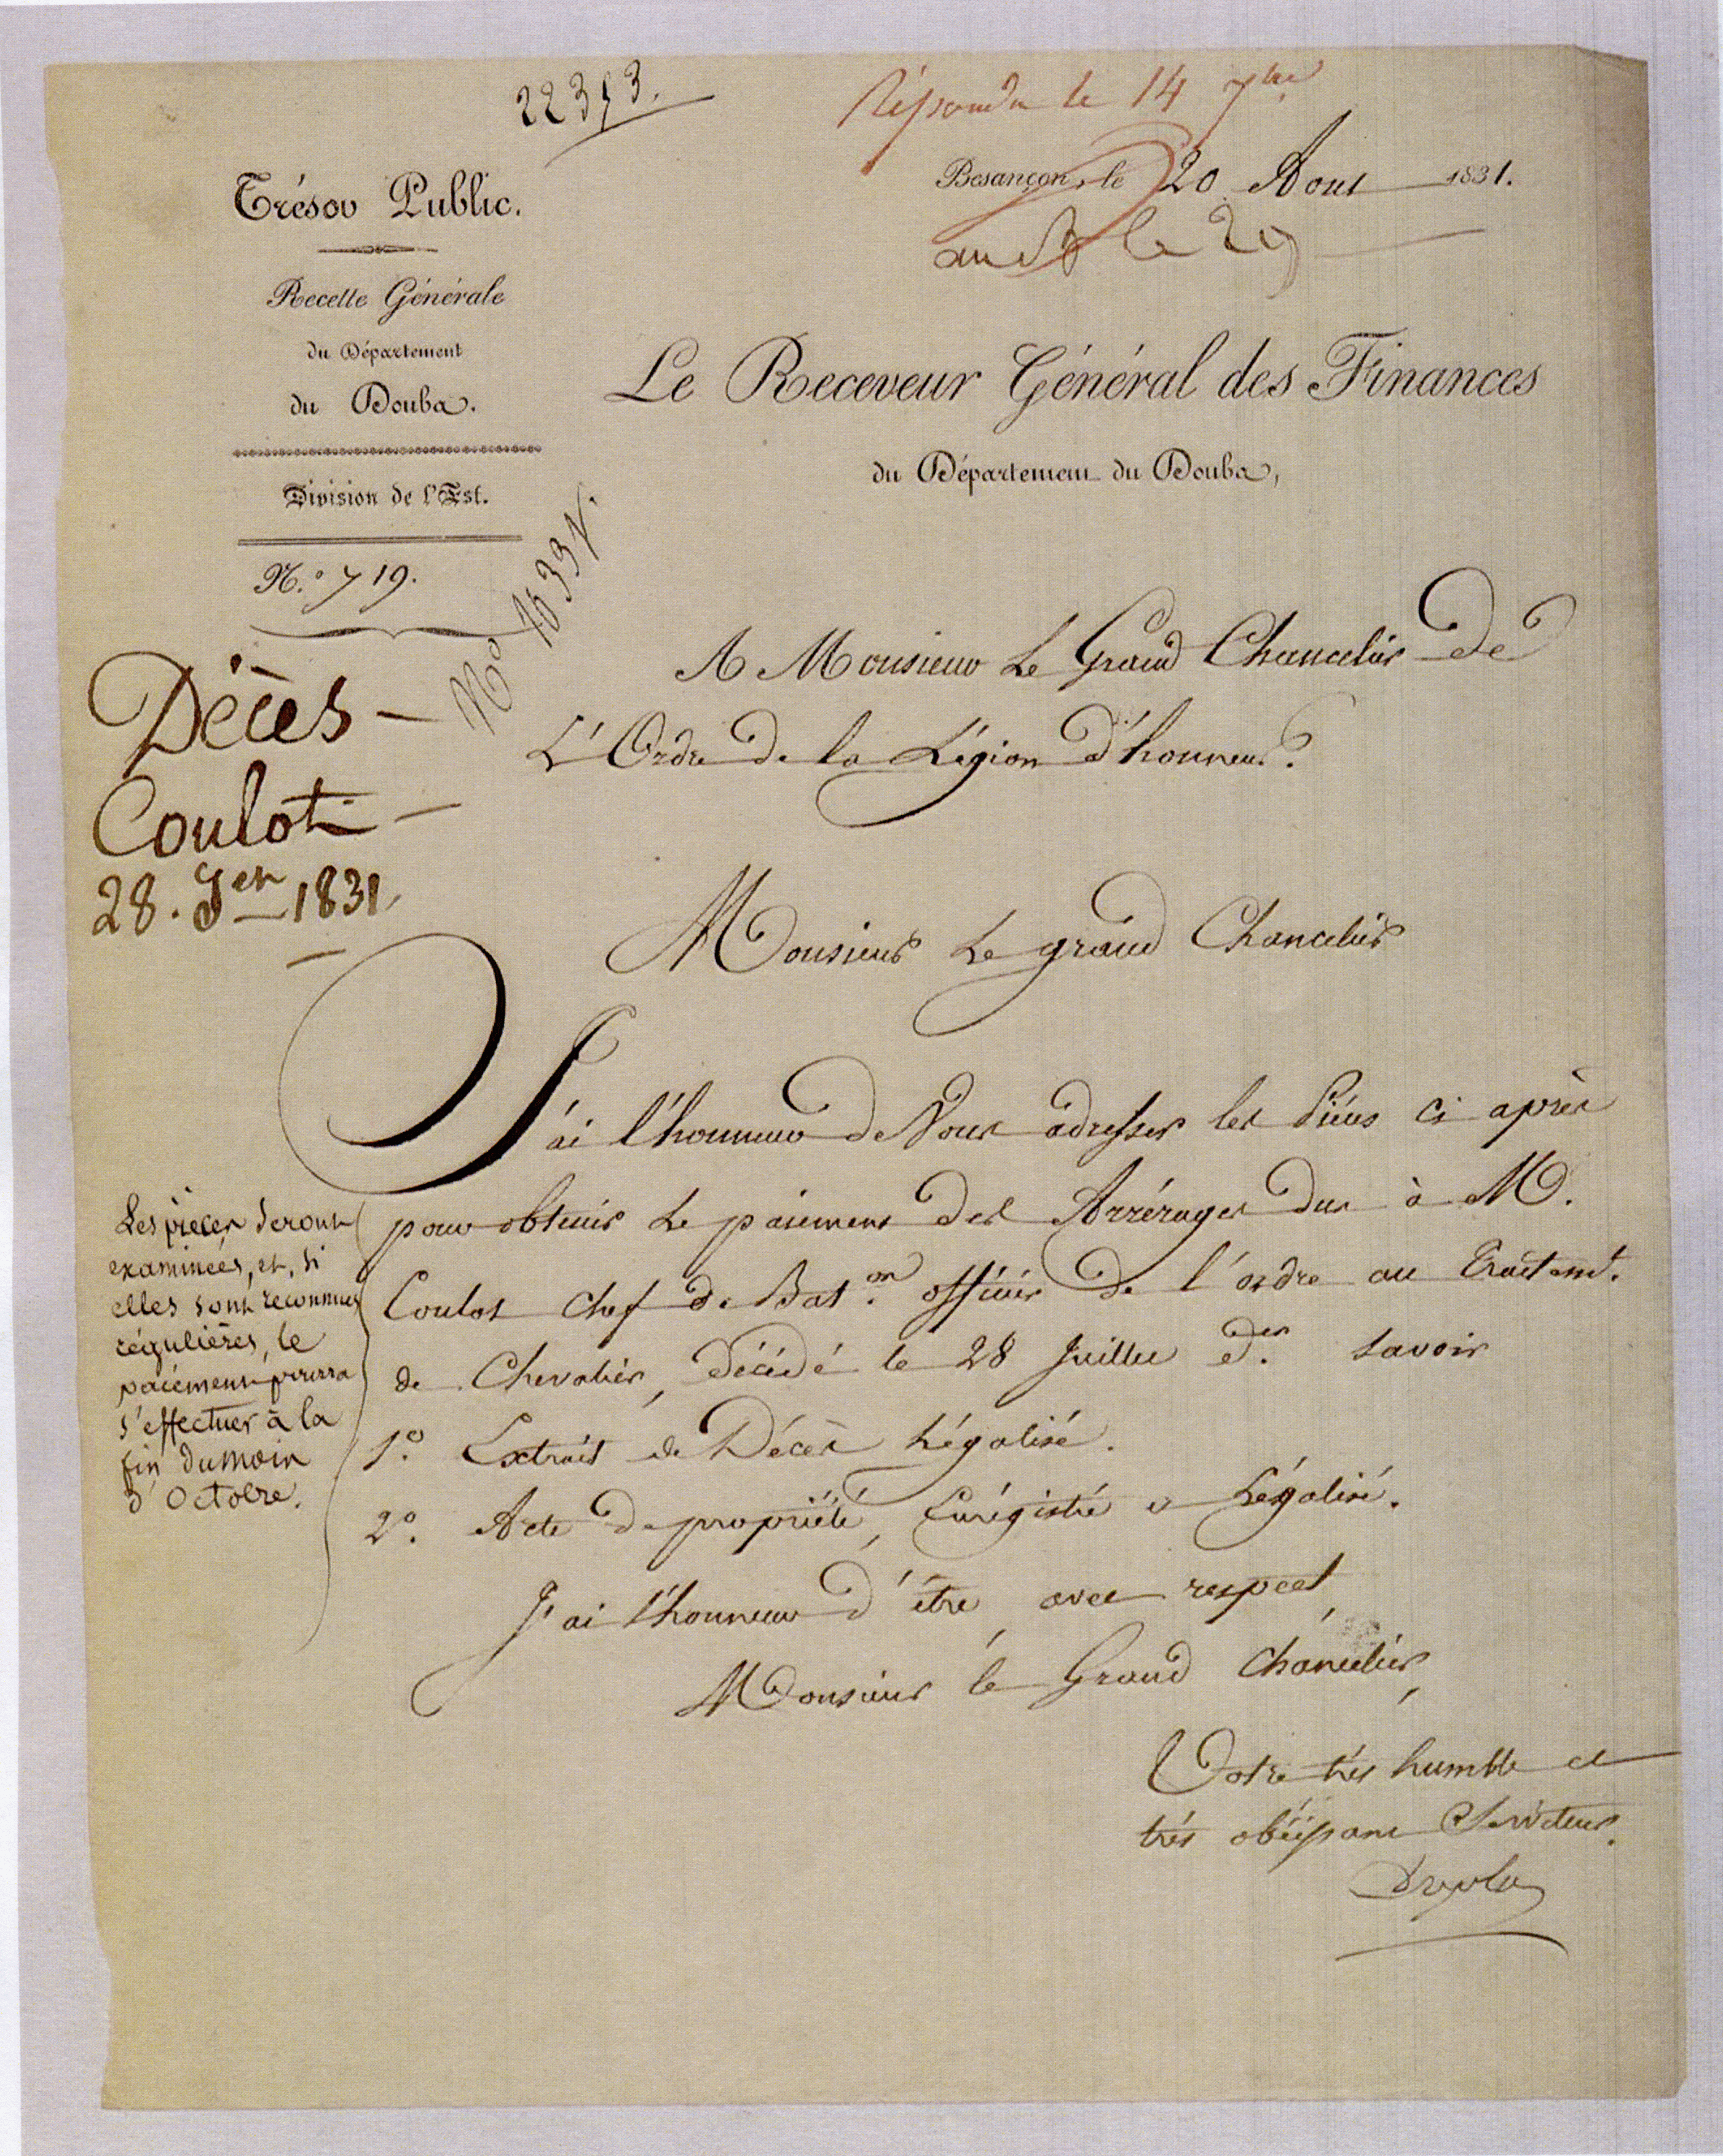 Répondu le 14 7bre
Trésor Public.
Besançon, le 20 Aout 1831.
le 29
Recette Générale
du Département
du Doubs.
Le Receveur Général des Finances
du Département du Doubs,
Division de l'Est.
N.° 719.
N°
A Monsieur Le Grand Chancelier de
L'Ordre de la Légion d'honneur.
Décès -
Coulot -
28. Jer 1831.
Monsieur Le grand Chancelier
J'ai l'honneur de Vous adresser les Pièces ci après
pour obtenir le paiement des Arrérages dus à M.
Coulot chef de Bat.on officier de l'ordre au Traitemt.
de Chevalier, Décédé le 28 Juillet der. savoir
1.° Extrait de Décès Légalisé.
2.° Acte de propriété, Enrégistré et Légalisé.
J'ai l'honneur d'être, avec respect,
Monsieur le Grand Chancelier,
Votre très humble et
très obéissant Serviteur.
Les pièces seront
examinées, et, si
elles sont reconnues
régulières, le
paiement pourra
s'effectuer à la
fin du mois
d'Octobre.